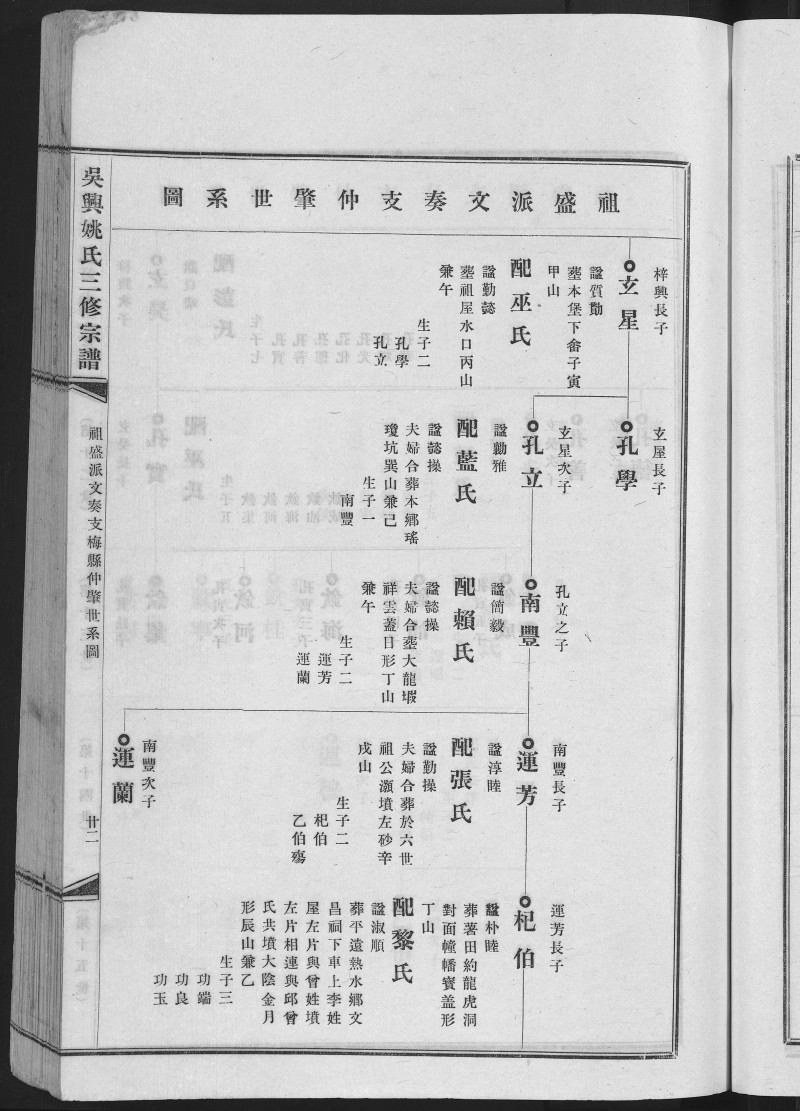 祖盛派文奏支仲肇世系圖
梓興長子
玄星
諡質勤
塟本堡下畬子寅
甲山
配巫氏
諡勤懿
塟祖屋水口丙山
兼午
生子二
孔學
孔立
玄星長子
孔學
玄星次子
孔立
諡勤雅
配藍氏
諡懿操
夫婦合葬本鄉瑤
瓊坑巽山兼己
生子一
南豐
孔立之子
南豐
諡簡毅
配賴氏
諡懿操
夫婦合塟大龍塅
祥雲蓋日形丁山
兼午
生子二
運芳
運蘭
南豐長子
運芳
諡淳睦
配張氏
諡勤操
夫婦合葬於六世
祖公灝墳左砂辛
戌山
生子二
杞伯
乙伯殤
南豐次子
運蘭
運芳長子
杞伯
諡朴睦
葬薯田約龍虎洞
對面幢幡寶蓋形
丁山
配黎氏
諡淑順
葬平遠熱水鄉文
昌祠下車上李姓
屋左片與曾姓墳
左片相連與邱曾
氏共墳大陰金月
形辰山兼乙
生子三
功端
功良
功玉
吳興姚氏三修宗譜
祖盛派文奏支梅縣仲肇世系圖
廿二